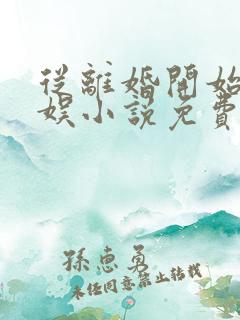 從離婚開始
娛小說免費
孫惠勇
未經同意禁止轉載